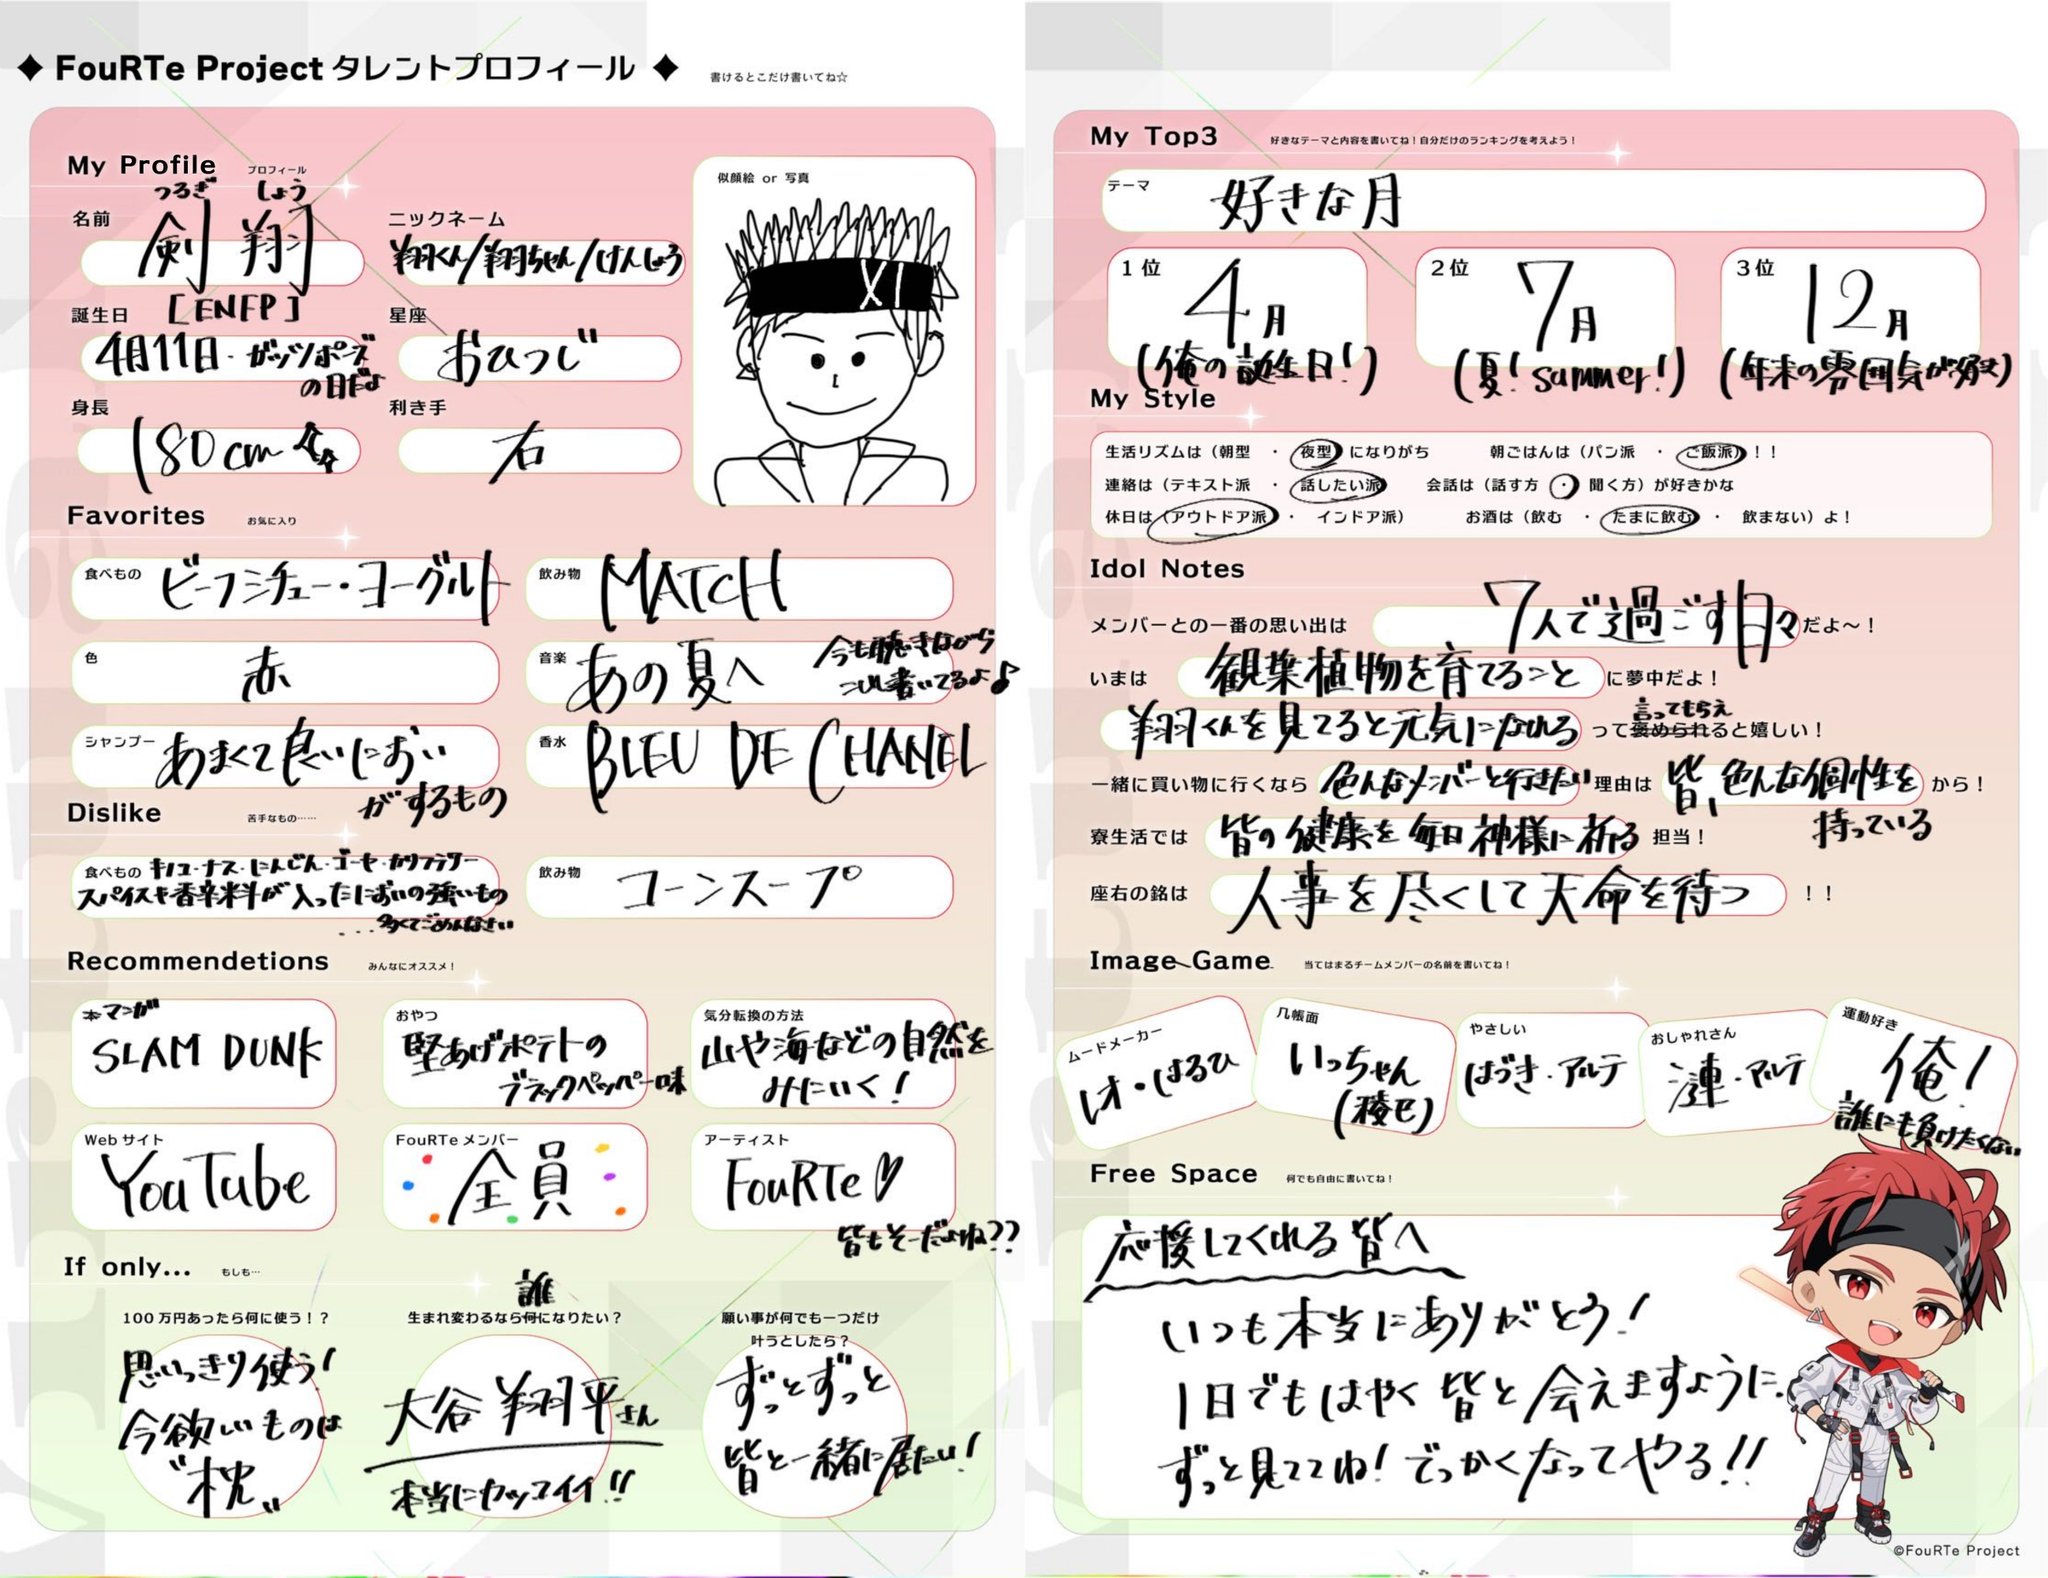 ◆ FouRTe Project タレントプロフィール ◆ 書けるとこだけ書いてね☆
My Profile プロフィール
つるぎ しょう
名前 剣 翔
[ENFP]
ニックネーム 翔くん/翔ちゃん/けんしょう
誕生日 4月11日・ガッツポーズ
の日だよ
星座 おひつじ
身長 180cm
利き手 右
似顔絵 or 写真
XI
Favorites お気に入り
食べもの ビーフシチュー・ヨーグルト
飲み物 MATCH
色 赤
音楽 あの夏へ 今も聴きながら
これ書いてるよ♪
シャンプー あまくて良いにおい
がするもの
香水 BLEU DE CHANEL
Dislike 苦手なもの……
食べもの キノコ・ナス・にんじん・ゴーヤ・カリフラワー
スパイスや香辛料が入ったにおいの強いもの
...多くてごめんなさい
飲み物 コーンスープ
Recommendetions みんなにオススメ！
本マンガ
SLAM DUNK
おやつ
堅あげポテトの
ブラックペッパー味
気分転換の方法
山や海などの自然を
みにいく！
Webサイト
YouTube
FouRTeメンバー
全員
アーティスト
FouRTe♡
皆もそーだよね??
If only... もしも…
100万円あったら何に使う！？
思いっきり使う！
今欲しいものは
"枕"
誰
生まれ変わるなら何になりたい？
大谷翔平さん
本当にカッコイイ!!
願い事が何でも一つだけ
叶うとしたら？
ずっとずっと
皆と一緒に居たい！
My Top3 好きなテーマと内容を書いてね！自分だけのランキングを考えよう！
テーマ 好きな月
1位 4月
(俺の誕生日！)
2位 7月
(夏！summer！)
3位 12月
(年末の雰囲気が好き)
My Style
生活リズムは（朝型 ・ 夜型）になりがち 朝ごはんは（パン派 ・ ご飯派）！！
連絡は（テキスト派 ・ 話したい派） 会話は（話す方 ・ 聞く方）が好きかな
休日は（アウトドア派 ・ インドア派） お酒は（飲む ・ たまに飲む ・ 飲まない）よ！
Idol Notes
メンバーとの一番の思い出は 7人で過ごす日々 だよ〜！
いまは 観葉植物を育てること に夢中だよ！
翔くんを見てると元気になれる って褒められると嬉しい！
言ってもらえ
一緒に買い物に行くなら 色んなメンバーと行きたい 理由は 皆、色んな個性を から！
持っている
寮生活では 皆の健康を毎日神様に祈る 担当！
座右の銘は 人事を尽くして天命を待つ ！！
Image Game 当てはまるチームメンバーの名前を書いてね！
ムードメーカー
レオ・はるひ
几帳面
いっちゃん
(稜巳)
やさしい
はづき・アルテ
おしゃれさん
漣・アルテ
運動好き
俺！
誰にも負けたくない
Free Space 何でも自由に書いてね！
応援してくれる皆へ
いつも本当にありがとう！
1日でもはやく皆と会えますように。
ずっと見ててね！でっかくなってやる!!
©FouRTe Project